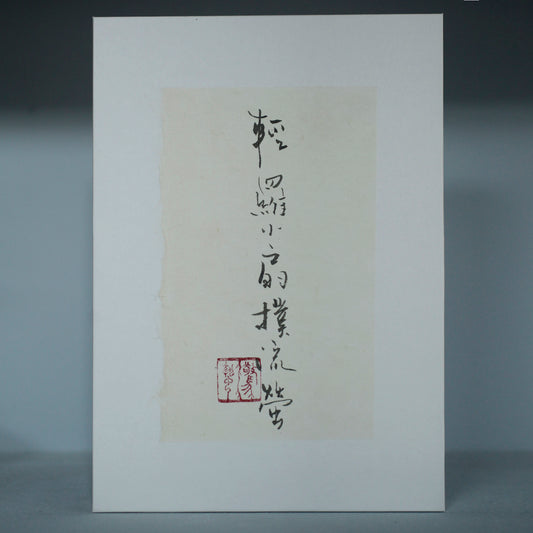 輕羅小扇撲流螢